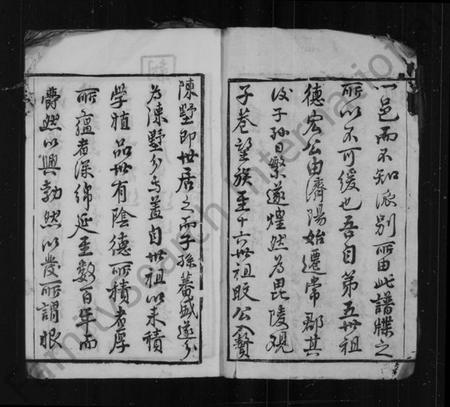 一邑而不知派別所由此譜牒之
所以不可緩也吾自第五世祖
德宏公由濟陽始遷常郡其
後子孫日繁遂煌然為毘陵
子巷望族至十六世祖公贅
陳墅即世居之而子孫蕃盛遂分
為陳墅分焉蓋自世祖以來積
學植品世有陰德所積者厚
所蘊者深綿延至數百年而
欝然以興勃然以發所謂眼